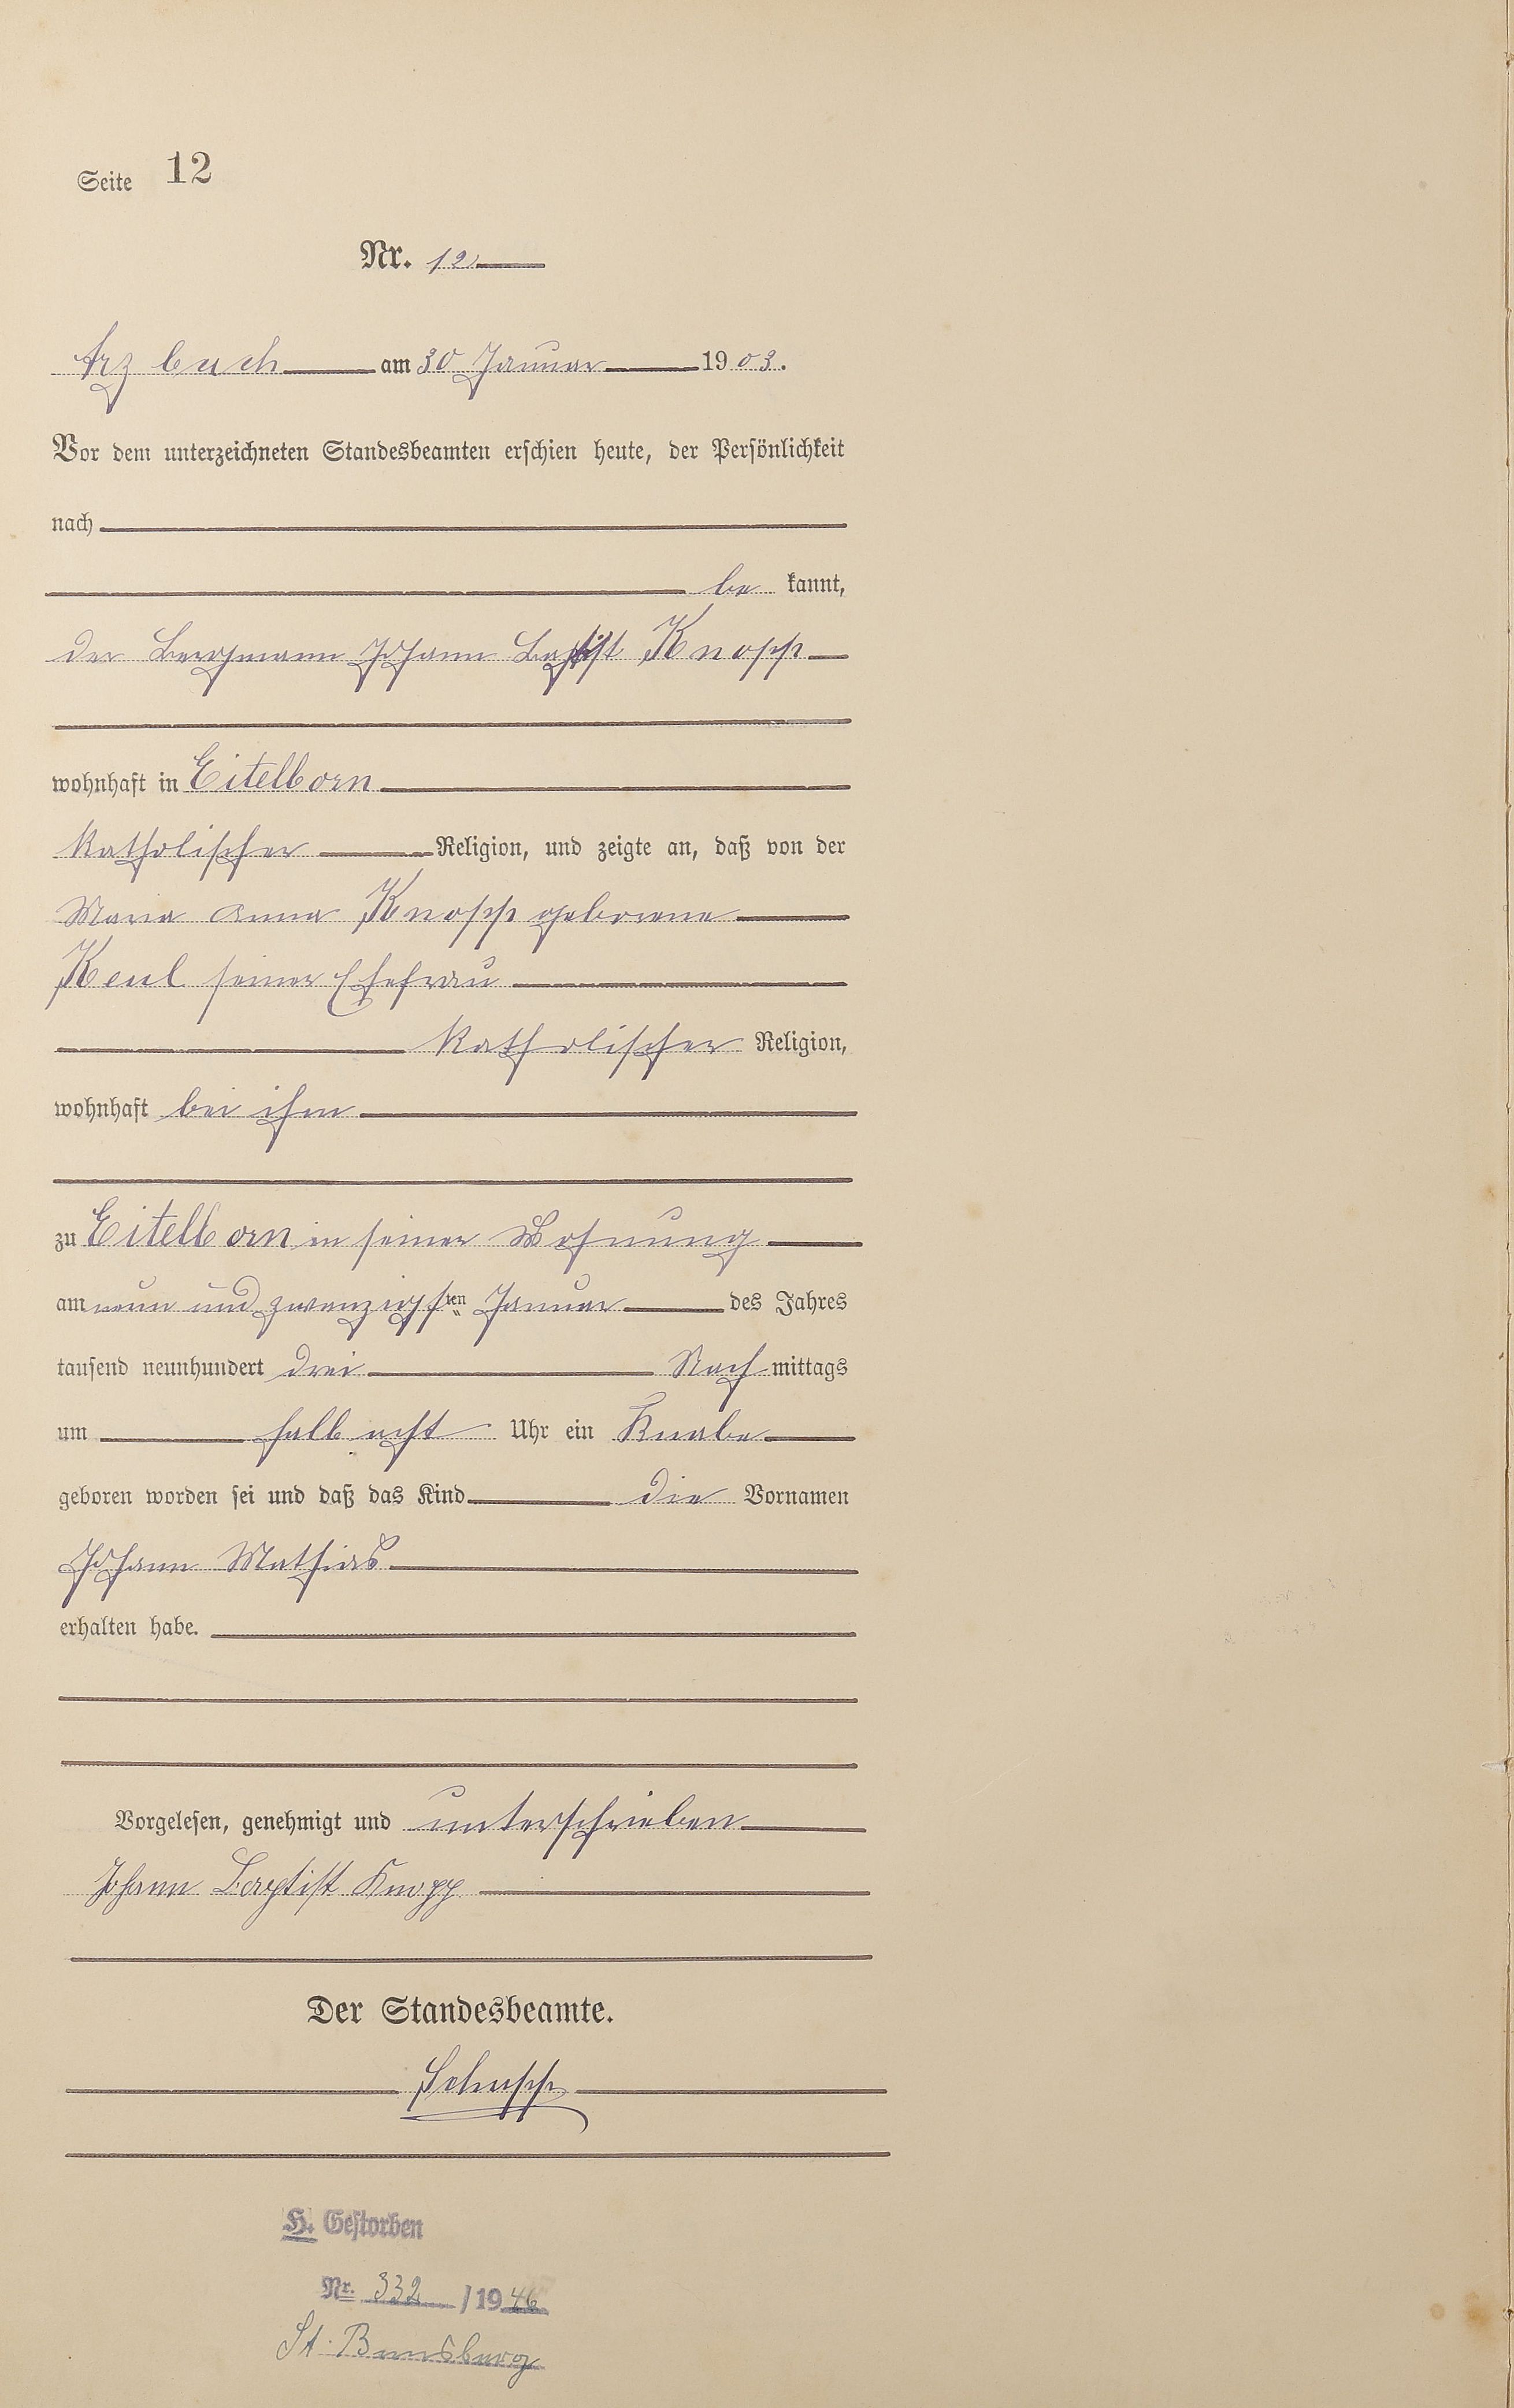 Seite 12
Nr. 12
Arzbach am 30 Januar 1903.
Vor dem unterzeichneten Standesbeamten erschien heute, der Persönlichkeit
nach
be kannt,
der Bergmann Johann Baptist Knopp
wohnhaft in Eitelborn
katholischer Religion, und zeigte an, daß von der
Maria Anna Knopp geborene
Keul seiner Ehefrau
katholischer Religion,
wohnhaft bei ihm
zu Eitelborn in seiner Wohnung
am neun und zwanzigsten Januar des Jahres
tausend neunhundert drei Nach mittags
um halb acht Uhr ein Knabe
geboren worden sei und daß das Kind die Vornamen
Johann Mathias
erhalten habe.
Vorgelesen, genehmigt und unterschrieben
Johann Baptist Knopp
Der Standesbeamte.
H. Gestorben
Nr. 332 /1946
St.